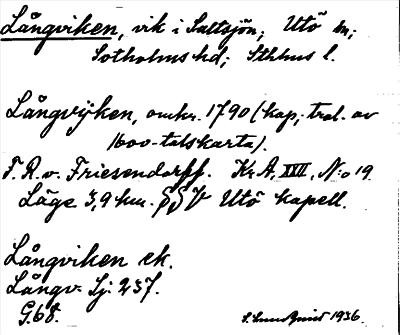 Långviken, vik i Saltsjön; Utö sn;
Sotholms hd; Sthlms l.
Långvijken, omkr. 1790 (kap; tral. av
1600-talskarta).
F. R. v. Friesendorff. Kr A, XXII, N:o 19.
Läge 3,9 km. SSV Utö kapell.
Långviken ek.
Långv. Sj: 237.
G.68. S. Lundquist 1936.